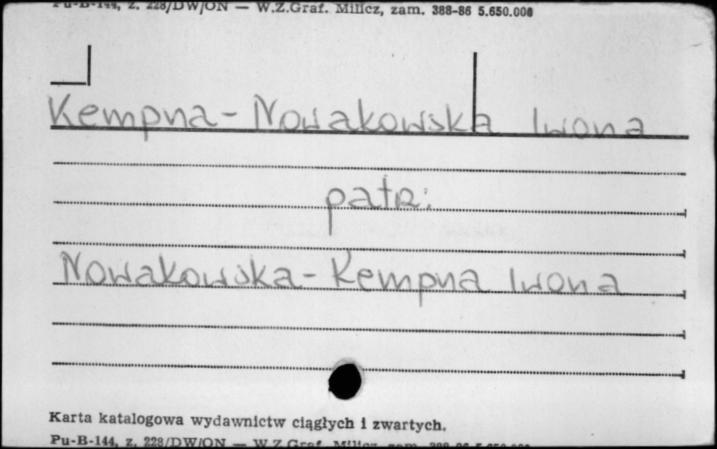 Pu-B-144, z. 228/DW/ON — W.Z.Graf. Milicz, zam. 388-86 5.650.000
Kempna-Nowakowska Iwona
patr:
Nowakowska-Kempna Iwona
Karta katalogowa wydawnictw ciągłych i zwartych.
Pu-B-144, z. 228/DW/ON — W.Z.Graf. Milicz, zam. 388-86 5.650.000